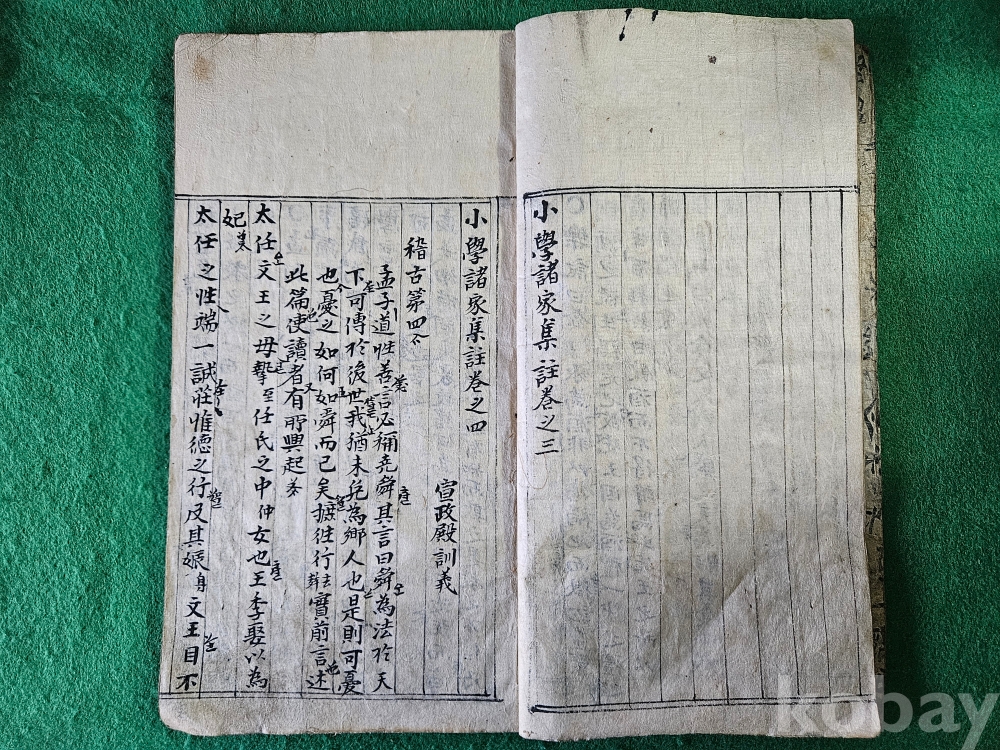 小學諸家集註卷之三
小學諸家集註卷之四
宣政殿訓義
稽古第四
孟子道性善言必稱堯舜其言曰舜為法於天
下可傳於後世我猶未免為鄉人也是則可憂
也憂之如何如舜而已矣摭往行去聲實前言述
此篇使讀者有所興起
太任文王之母摯至任氏之中仲女也王季娶以為
妃
太任之性端一誠莊惟德之行及其娠身文王目不
kobay